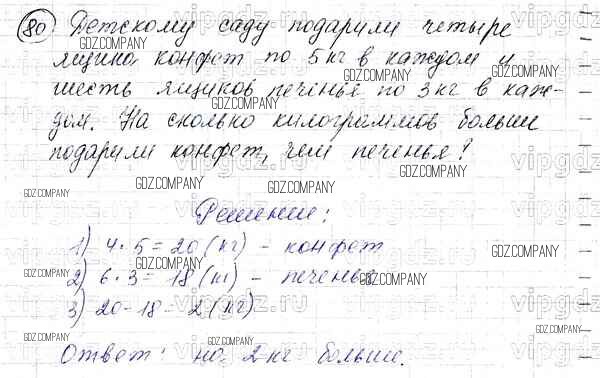 80 Детскому саду подарили четыре
ящика конфет по 5 кг в каждом и
шесть ящиков печенья по 3 кг в каж-
дом. На сколько килограммов больше
подарили конфет, чем печенья?
Решение:
1) 4 · 5 = 20 (кг) - конфет
2) 6 · 3 = 18 (кг) - печенья
3) 20 - 18 = 2 (кг)
Ответ: на 2 кг больше.
GDZ.COMPANY
vipgdz.ru